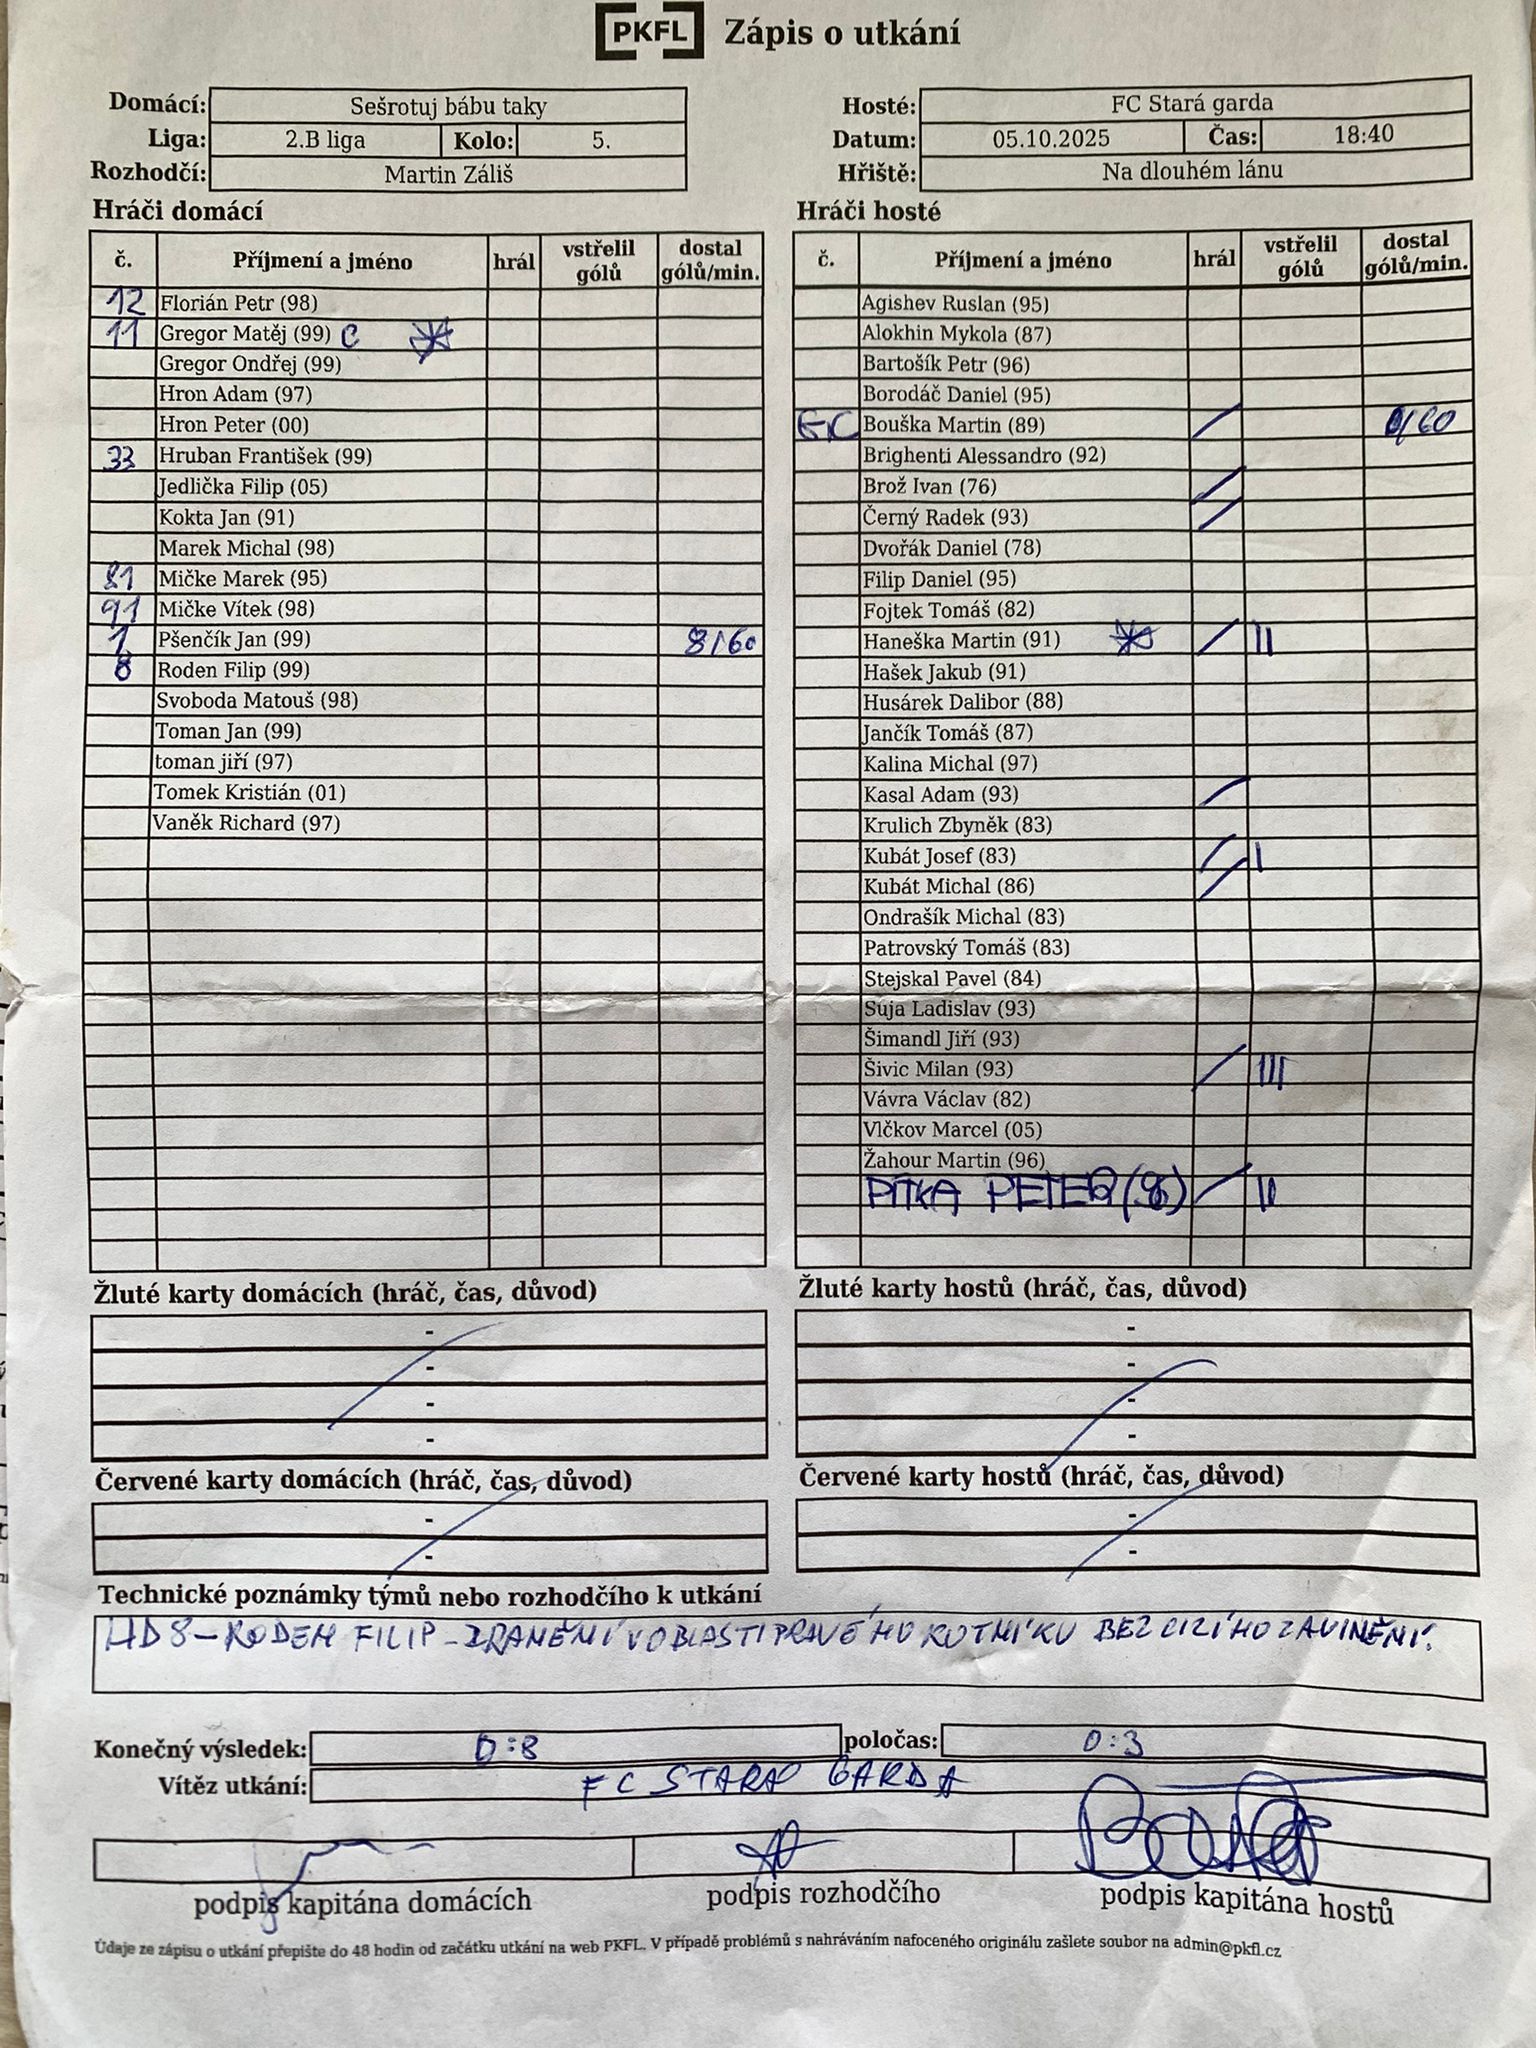 PKFL Zápis o utkání
Domácí: Sešrotuj bábu taky
Liga: 2.B liga Kolo: 5.
Rozhodčí: Martin Záliš
Hosté: FC Stará garda
Datum: 05.10.2025 Čas: 18:40
Hřiště: Na dlouhém lánu
Hráči domácí
č. Příjmení a jméno hrál vstřelil gólů dostal gólů/min.
12 Florián Petr (98)
11 Gregor Matěj (99) C
Gregor Ondřej (99)
Hron Adam (97)
Hron Peter (00)
33 Hruban František (99)
Jedlička Filip (05)
Kokta Jan (91)
Marek Michal (98)
81 Mičke Marek (95)
91 Mičke Vítek (98)
1 Pšenčík Jan (99) 8/60
8 Roden Filip (99)
Svoboda Matouš (98)
Toman Jan (99)
toman jiří (97)
Tomek Kristián (01)
Vaněk Richard (97)
Hráči hosté
č. Příjmení a jméno hrál vstřelil gólů dostal gólů/min.
Agishev Ruslan (95)
Alokhin Mykola (87)
Bartošík Petr (96)
Borodáč Daniel (95)
Bouška Martin (89) / 0/60
Brighenti Alessandro (92)
Brož Ivan (76) /
Černý Radek (93) /
Dvořák Daniel (78)
Filip Daniel (95)
Fojtek Tomáš (82)
Haneška Martin (91) / II
Hašek Jakub (91)
Husárek Dalibor (88)
Jančík Tomáš (87)
Kalina Michal (97)
Kasal Adam (93) /
Krulich Zbyněk (83)
Kubát Josef (83) / I
Kubát Michal (86) /
Ondrašík Michal (83)
Patrovský Tomáš (83)
Stejskal Pavel (84)
Suja Ladislav (93)
Šimandl Jiří (93)
Šivic Milan (93) / III
Vávra Václav (82)
Vlčkov Marcel (05)
Žahour Martin (96)
PITKA PETER / II
Žluté karty domácích (hráč, čas, důvod)
-
-
-
-
Žluté karty hostů (hráč, čas, důvod)
-
-
-
-
Červené karty domácích (hráč, čas, důvod)
-
-
Červené karty hostů (hráč, čas, důvod)
-
-
Technické poznámky týmů nebo rozhodčího k utkání
HD 8 - RODEN FILIP - ZRANĚNÍ V OBLASTI PRAVÉHO KOTNÍKU BEZ CIZÍHO ZAVINĚNÍ.
Konečný výsledek: 0:8 poločas: 0:3
Vítěz utkání: FC STARÁ GARDA
podpis kapitána domácích podpis rozhodčího podpis kapitána hostů
Údaje ze zápisu o utkání přepište do 48 hodin od začátku utkání na web PKFL. V případě problémů s nahráváním nafoceného originálu zašlete soubor na admin@pkfl.cz